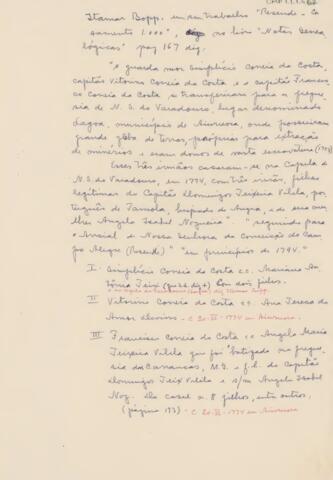 Itamar Bopp. em seu trabalho "Resende - Ca
samentos 1.000", no livro "Notas Genea
lógicas" pag 167 diz.
"o guarda mor Simplício Correia da Costa,
capitão Vitorino Correia da Costa e o capitão Francis
co Correia da Costa se transferiram para a fregue
sia de N. S. do Varadouro, lugar denominado
Lagoa, município de Aiuruoca, onde possuiram
grande gleba de terras, propícias para extração
de minérios e eram donos de vasta escravatura
Esses três irmãos casaram-se, na Capela de
N. S. do Varadouro, em 1794, com três irmãs, filhas
legítimas do Capitão Domingos Teixeira Vilela, por
tuguês de batizado de e de sua mu
lher Angela Isabel Nogueira" "seguindo para
o Arraial de Nossa Senhora da Conceição do Cam
po Alegre (Resende)" "em princípios de 1794."
I - Simplício Correia da Costa c.c. Mariana An
tônia Teix com dois filhos.
II - Vitorino Correia da Costa c.c. Ana Tereza do
Amor Divino - C 20-XI-1794 em Aiuruoca
III - Francisco Correia da Costa c.c Angela Maria
Teixeira Vilela que foi "batizada na fregue
sia das Carrancas, M.G. e f.l. do capitão
Domingos Teix Vilela e s/m Angela Isabel
Nog. Do casal = 8 filhos, entre outros,
(página 173) - C 20-XI-1794 em Aiuruoca